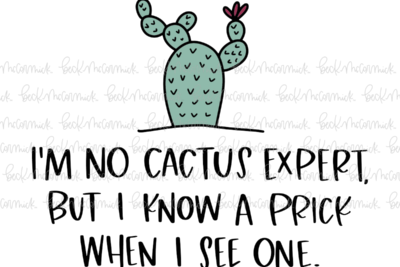 I'M NO CACTUS EXPERT,
BUT I KNOW A PRICK
WHEN I SEE ONE.